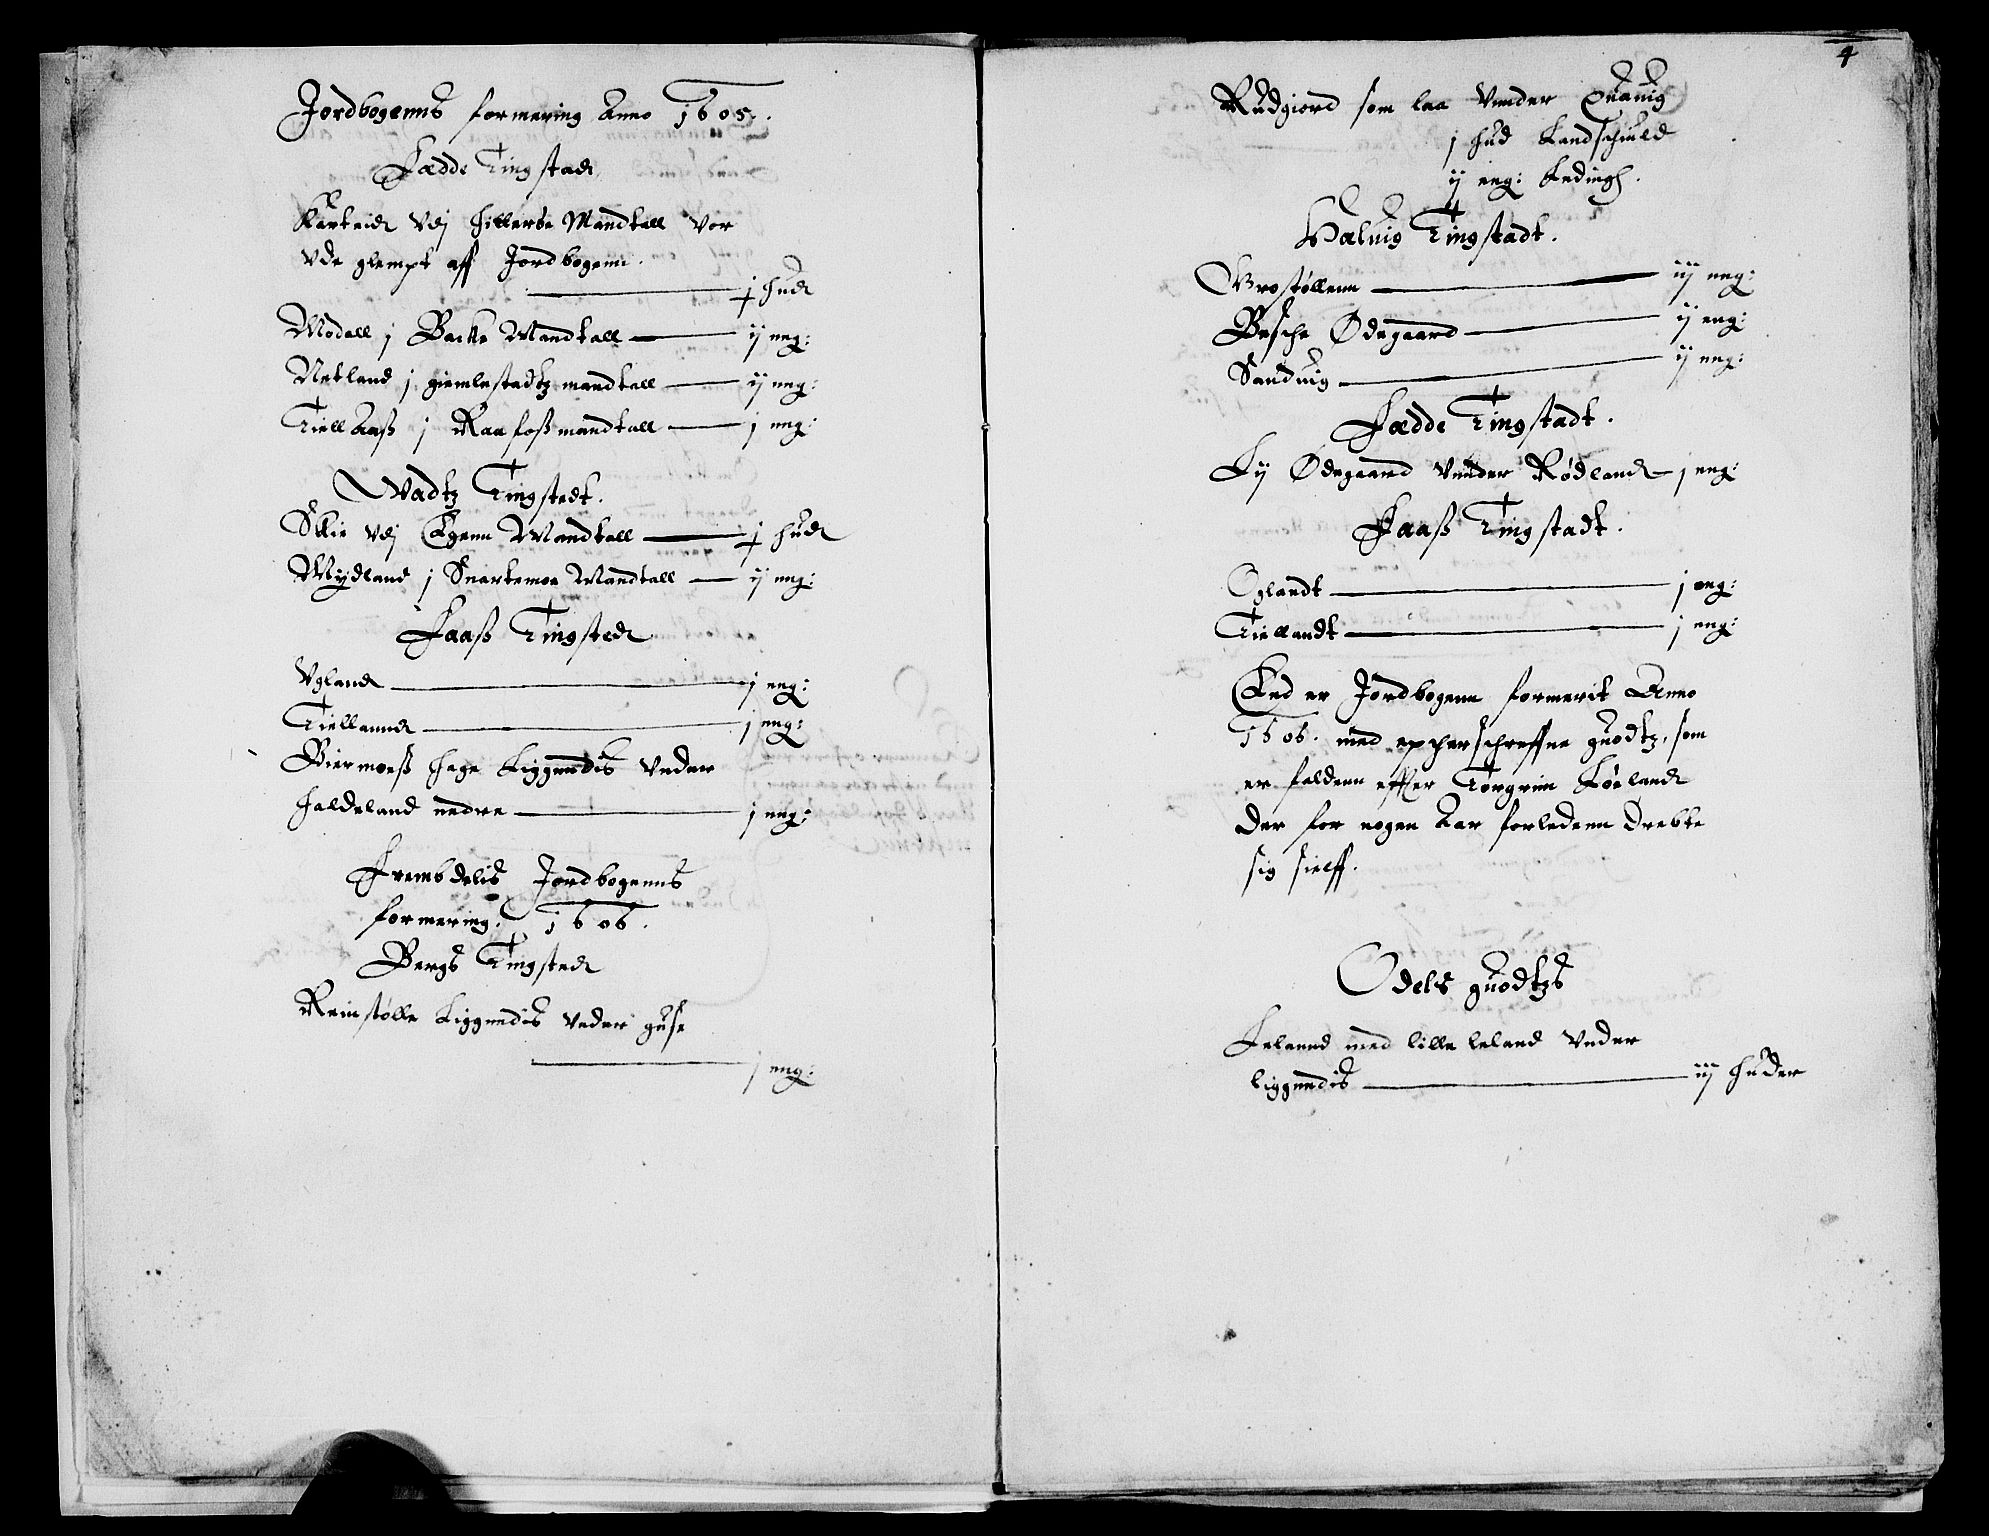 Jordbogenns formering Anno 1605.
Fedde Tingstad
Kerteid vdj Hillersø Mandtall vor
vde glempt aff Jordbogenn.
j hud
Modall j Backe Mandtall — ij eng:
Netland j giemlestadtz mandtall — ij eng:
Tiellaaß j Raafoß mandtall — j eng:
Wadtz Tingstedt.
Skie vdj Egenn Mandtall — j hud
Mydland j Snartemoe Mandtall — ij eng:
Faaß Tingsted
Vgland — j eng:
Tiellannd — j eng:
Biermoeß hage Liggendis vnder
Haldeland nedre — j eng:
Frembdelis Jordbogenns
formering. 1606.
Bergs Tingsted
Reinstølle Liggendis vnder guse
j eng:
4
Rudgiord som laa vnnder Quauig
j hud Landschuld
ij eng: Leding.
Haluig Tingstadt.
Wrostøllenn — iij eng:
Besche Ødegaard — ij eng:
Sanduig — ij eng:
Fedde Tingstadt.
Ly Ødegaard vnnder Rødland — j eng:
Faaß Tingstadt.
Oglandt — j eng:
Tiellandt — j eng:
End er Jordbogenn formerit Anno
1606. med epcherschreffne guodtz, som
er faldenn effter Torgrim Løeland
der for nogen Aar forledenn Drebte
sig sielff.
Odels guodtzs
Leland med lille leland vnder
liggendis — iij huder